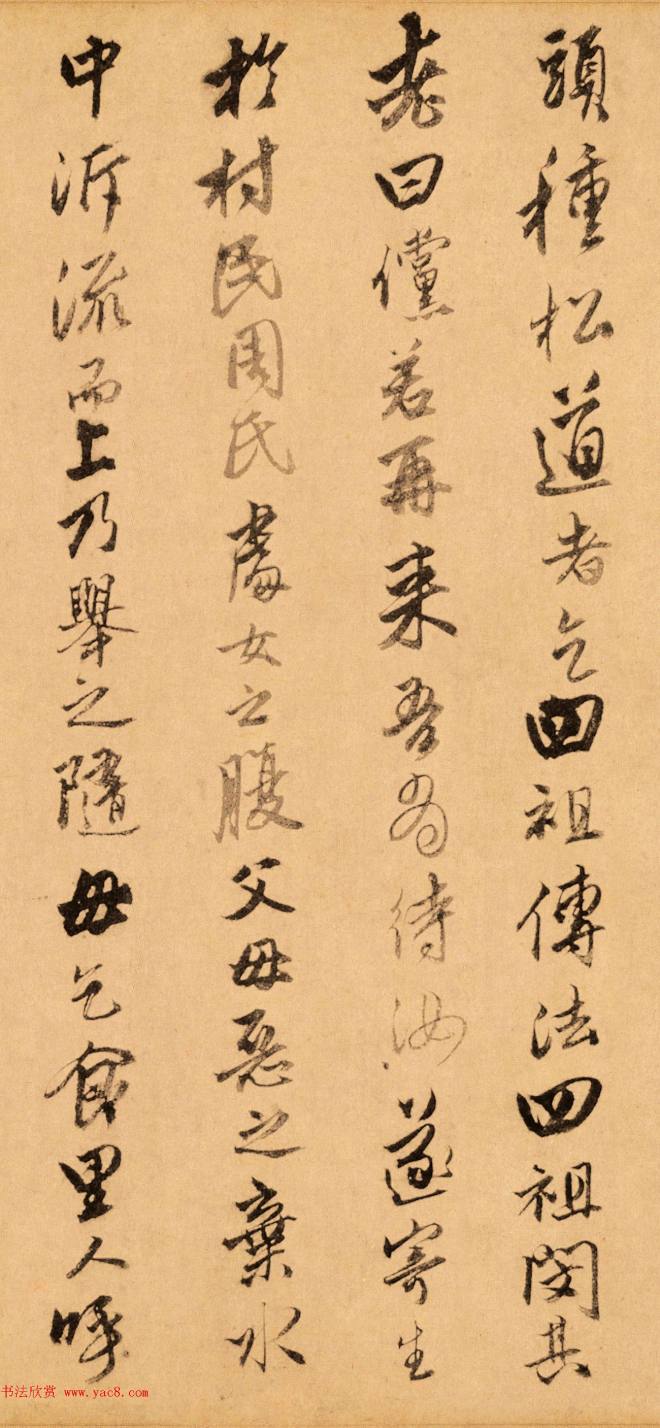 頭種松道者乞四祖傳法四祖閔其
老曰儻若再来吾當待汝遂寄生
於村民周氏處女之腹父母惡之棄水
中泝流而上乃舉之隨母乞食里人呼
书法欣赏 www.yac8.com